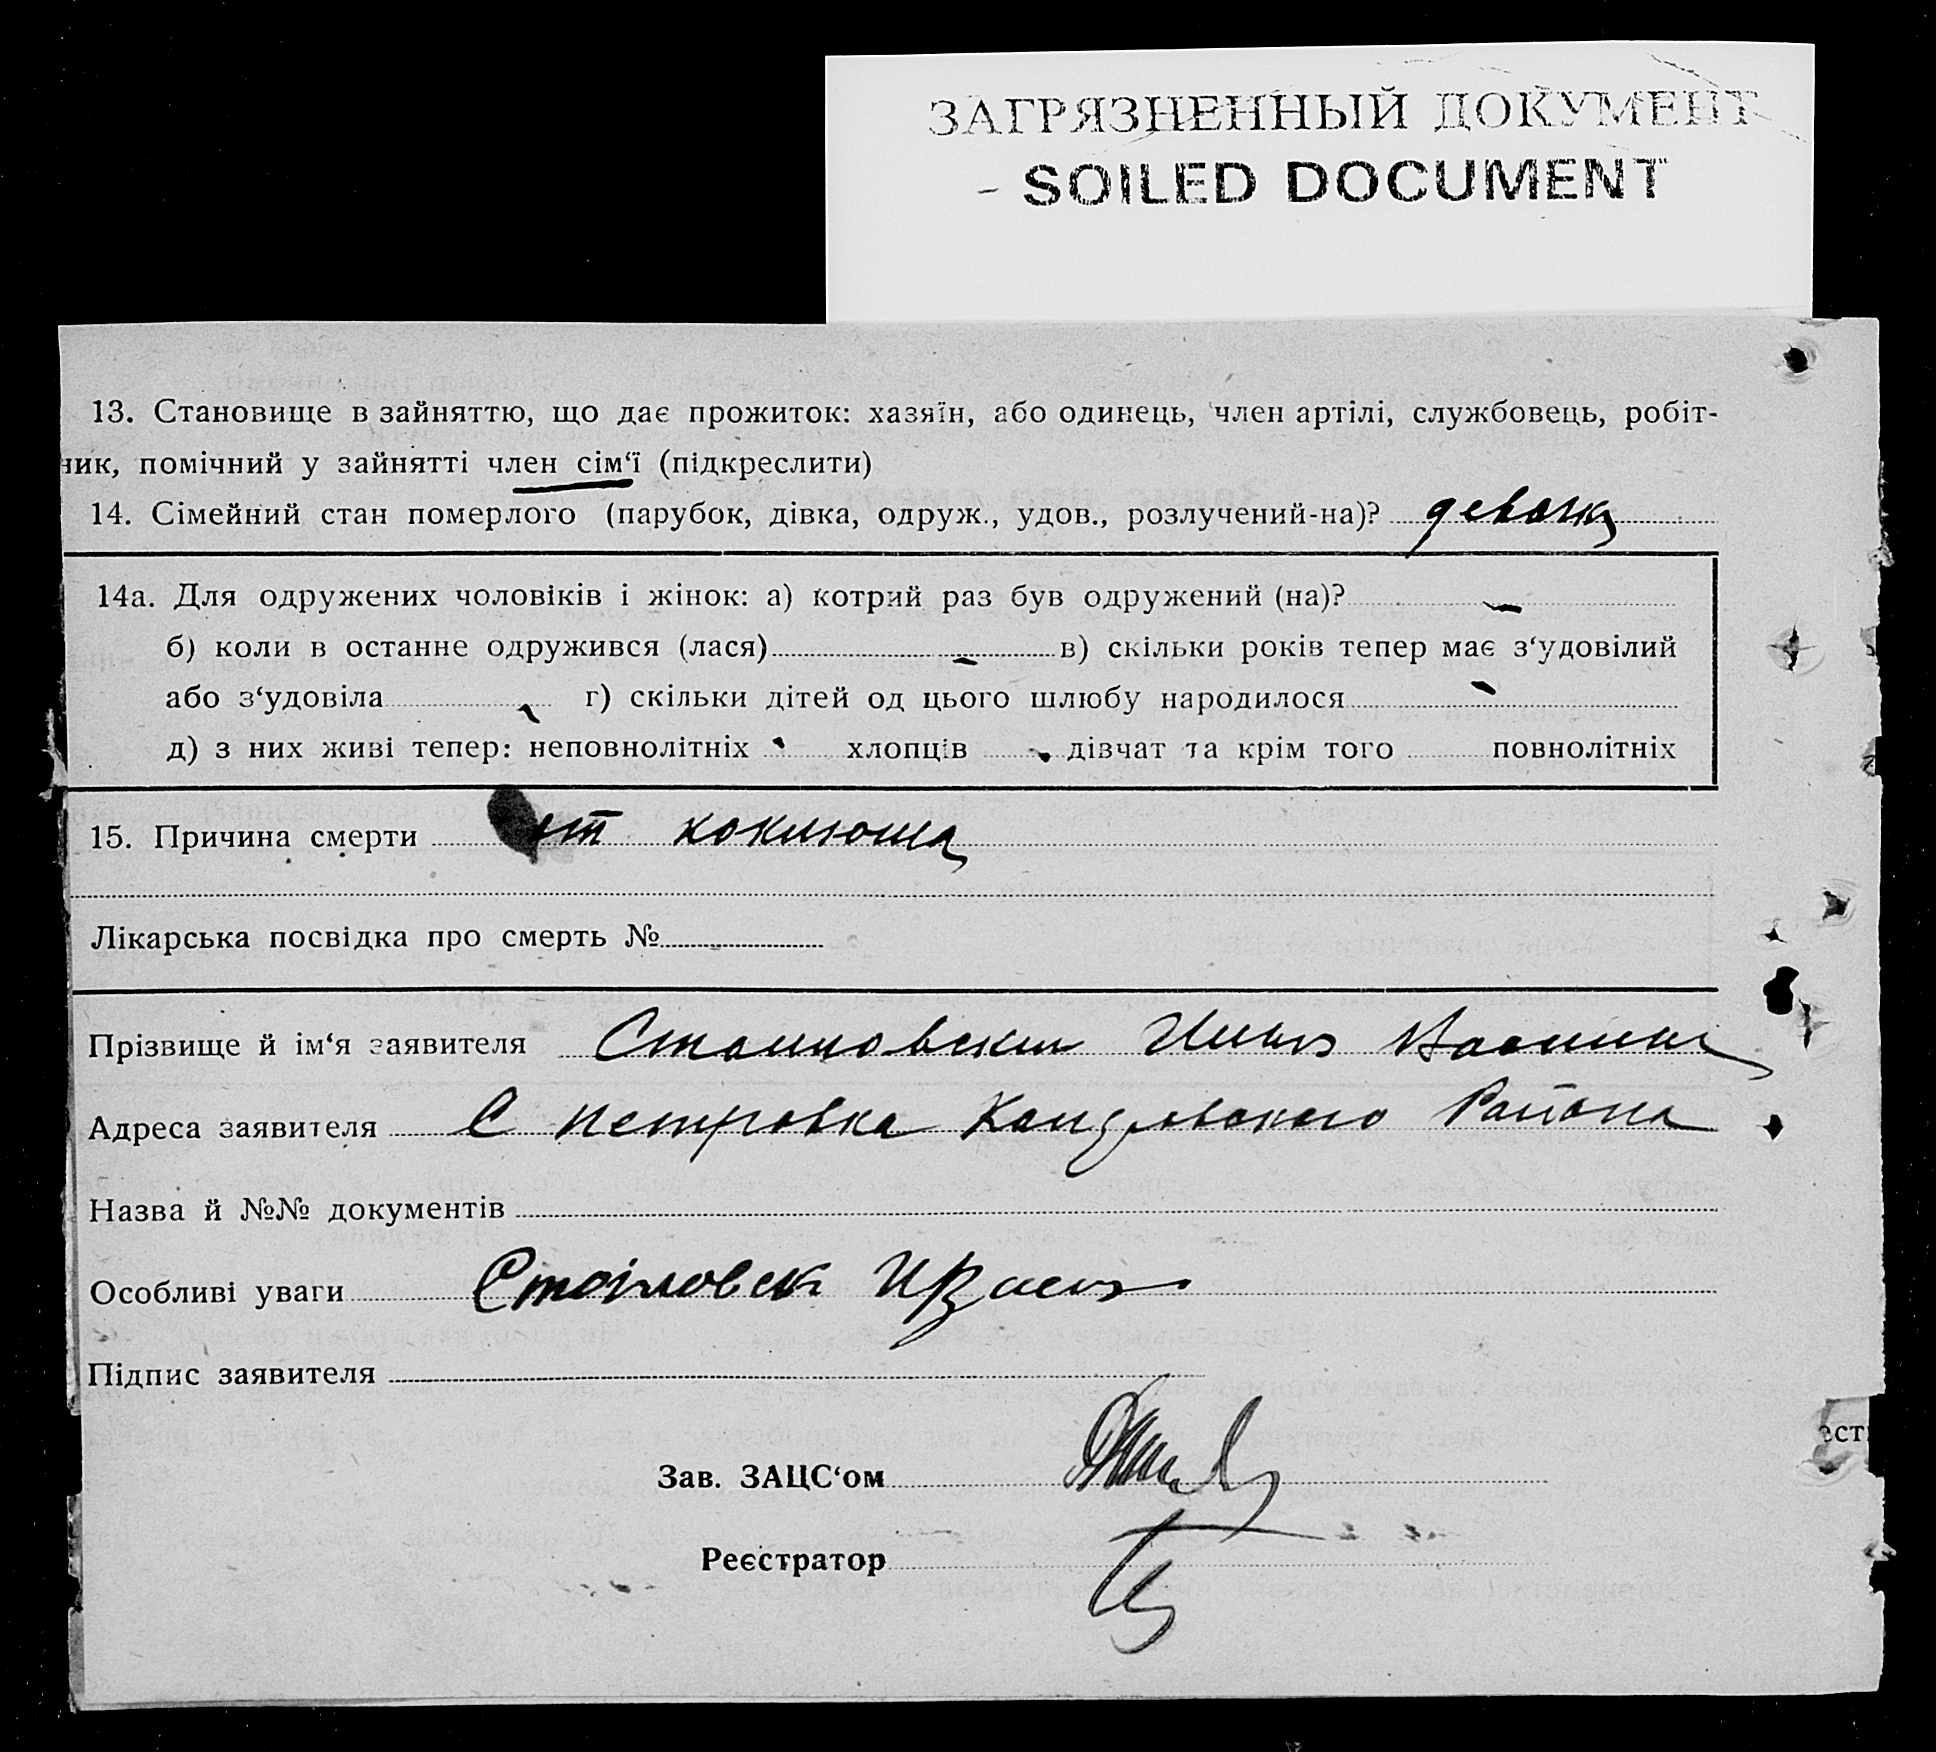 ЗАГРЯЗНЕННЫЙ ДОКУМЕНТ
- SOILED DOCUMENT
13. Становище в зайняттю, що дає прожиток: хазяїн, або одинець, член артілі, службовець, робіт-
ник, помічний у зайнятті член сім‘ї (підкреслити)
14. Сімейний стан померлого (парубок, дівка, одруж., удов., розлучений-на)?
14а. Для одружених чоловіків і жінок: а) котрий раз був одружений (на)? —
б) коли в останнє одружився (лася) — в) скільки років тепер має з‘удовілий
або з‘удовіла — г) скільки дітей од цього шлюбу народилося —
д) з них живі тепер: неповнолітніх хлопців дівчат та крім того повнолітніх
15. Причина смерти от коклюша
Лікарська посвідка про смерть №
Прізвище й ім‘я заявителя
Адреса заявителя С Петровка Района
Назва й №№ документів
Особливі уваги
Підпис заявителя
ест
Зав. ЗАЦС‘ом
Реєстратор